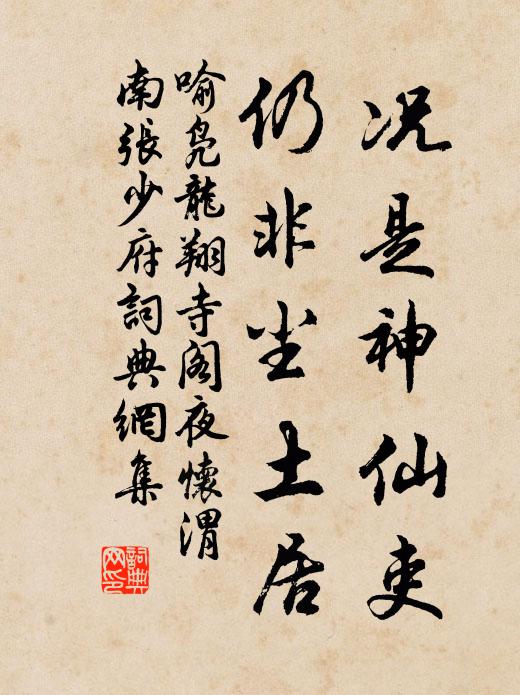 况是神仙吏
仍非尘土居
喻凫龍翔寺阁夜懷渭
南張少府詞典網集
詞典
网印